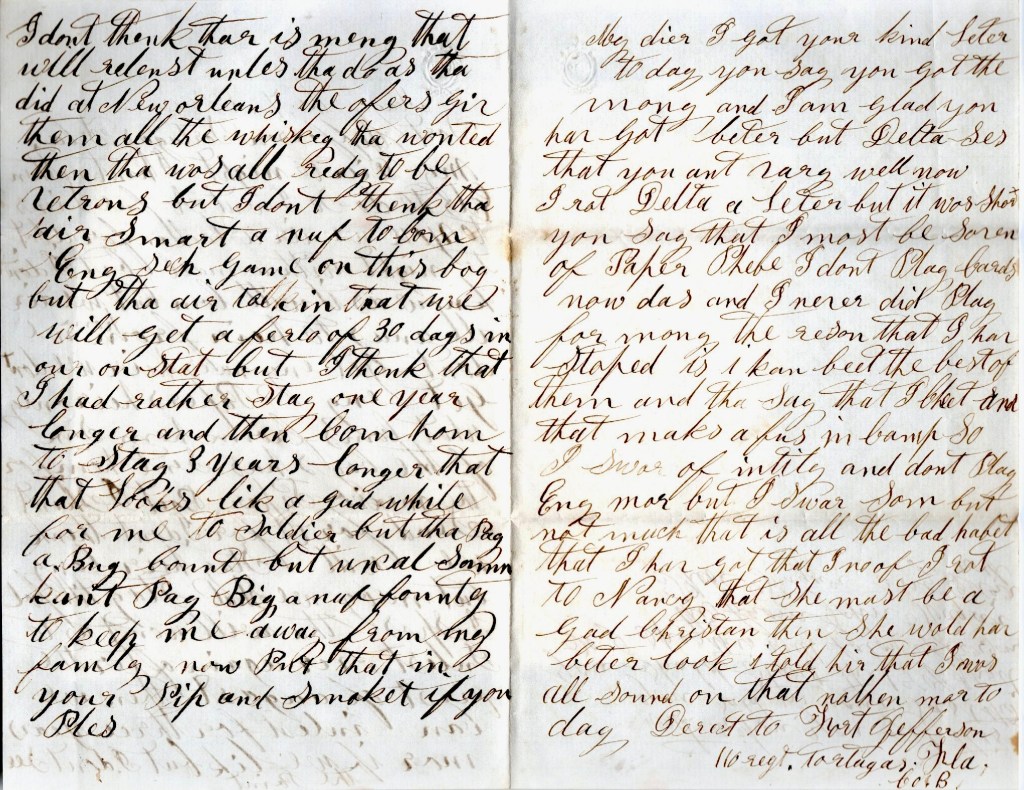 I dont thenk thar is meng that
will relenst unles tha do as tha
did at New orleans the ofers giv
them all the whiskey tha wonted
then tha was all redy to be
vetrons but I dont thenk tha
air Smart a nuf to com
Eng sech game on this boy
but tha air talk in that we
will get a ferlo of 30 days in
our on Stat but I thenk that
I had rather Stay one year
longer and then Com hom
to Stay 3 years longer that
that looks lik a gud while
for me to Soldier but tha Pay
a Bug bount but uncal Samm
kant Pay Big a nuf bounty
to keep me away from my
family now Put that in
your Pip and Smoket if you
Ples
My dier I got your kind leter
to day you say you got the
mony and I am glad you
hav got beter but Delta Ses
that you ant vary well now
I rot Delta a leter but it was Short
you Say that I most be Saven
of Paper Phebe I dont Play Cards
now das and I never did Play
for mony the reson that I hav
Stoped is i kan beet the best of
them and tha Say that I Cheet and
that maks a fus in Camp So
I Swor of intily and dont Play
Eng mor but I Swar Som but
not much that is all the bad habit
that I hav got that I noof I rot
to Nancy that She must be a
Gad Christan then She wold hav
beter look i told hir that I was
all Sound on that nothen mor to
day Derect to Fort Jefferson
110 regt. Tortugas, Fla.
Co. B.